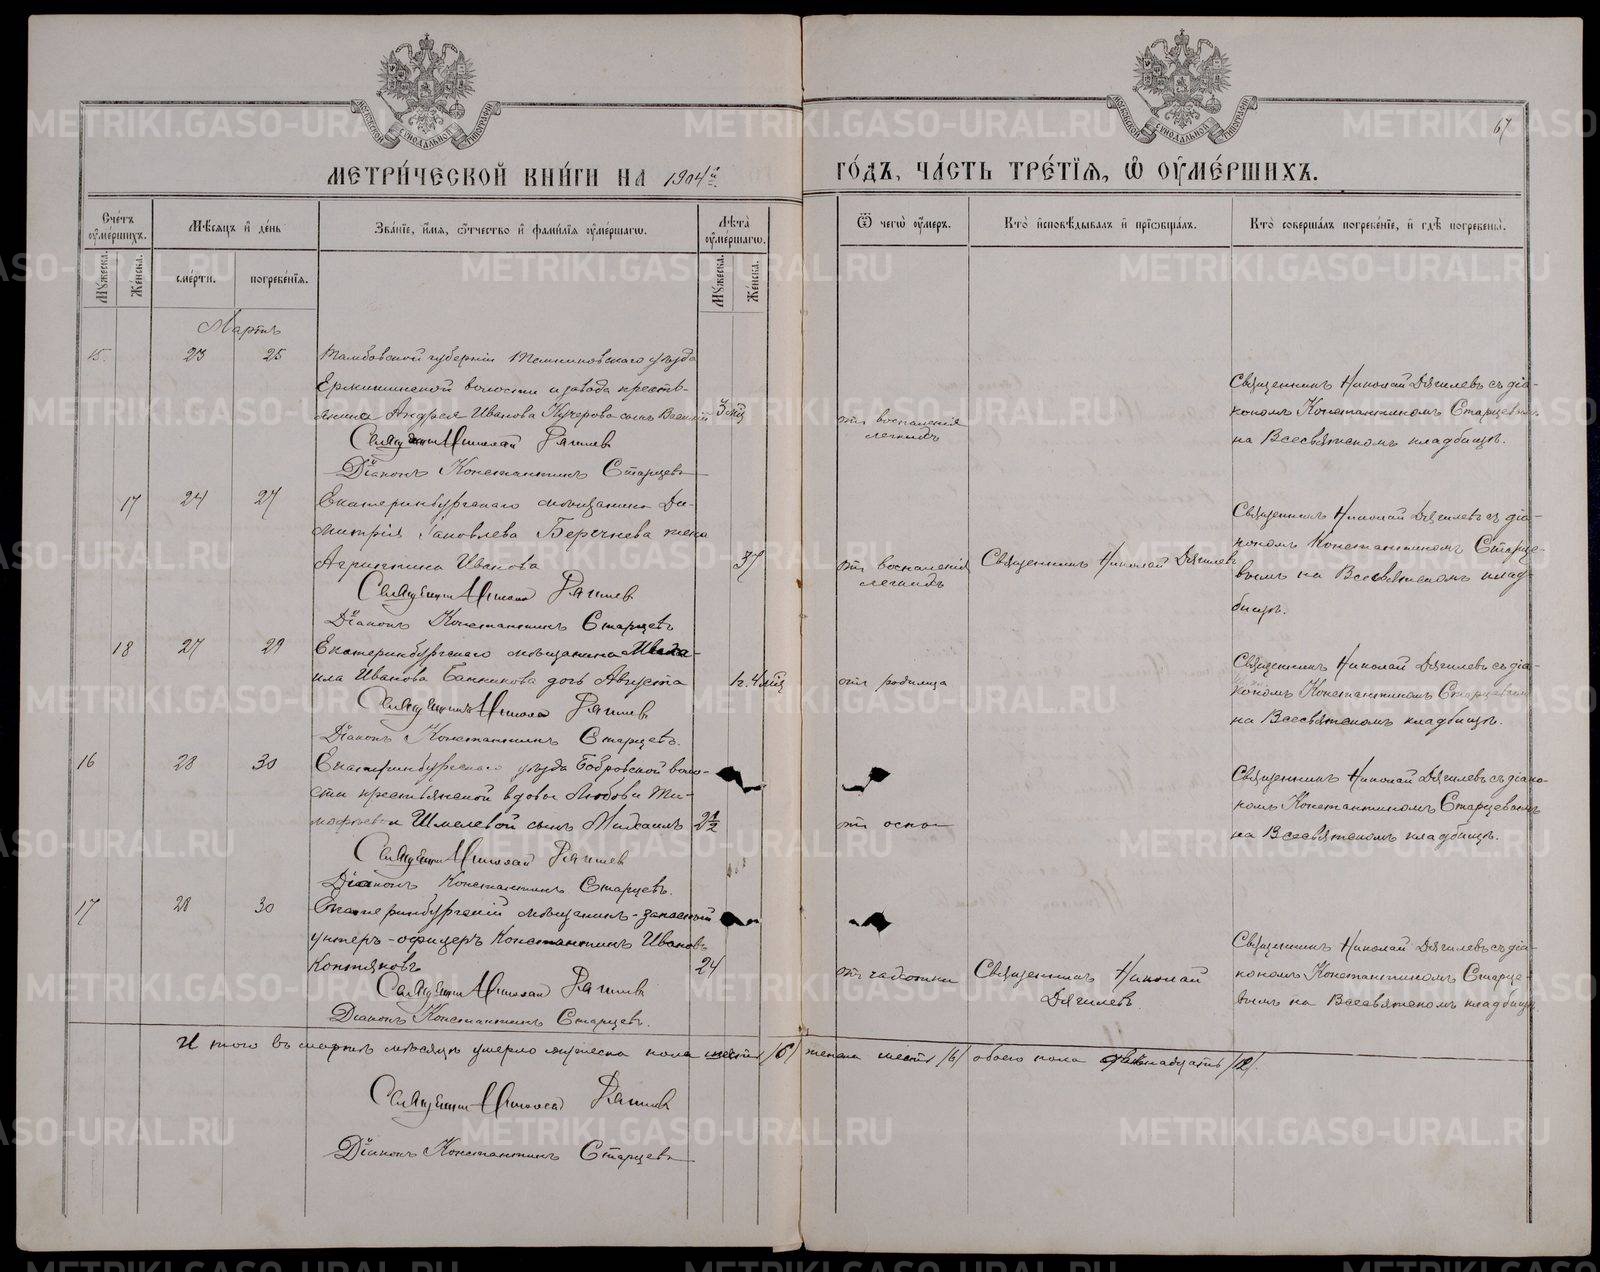 МЕТРИ́ЧЕСКОЙ КНИ́ГИ НА 1904 й
ГО́ДЪ, ЧА́СТЬ ТРЕ́ТЇѦ, Ѡ҆ ОУ҆МЕ́РШИХЪ.
67
Сче́тъ оу҆ме́ршихъ.
Мѣ́сѧцъ и҆ де́нь
Зва́нїе, и҆́мѧ, ѻ҆́тчество и҆ фами́лїѧ оу҆ме́ршагѡ.
Лѣ́та оу҆ме́ршагѡ.
Ѿ чегѡ̀ оу҆́меръ.
Кто̀ и҆сповѣ́дывалъ и҆ прїѻбща́лъ.
Кто̀ соверша́лъ погребе́нїе, и҆ гдѣ̀ погребены̀.
Мꙋ́жеска.
Же́нска.
сме́рти.
погребе́нїѧ.
Мꙋ́жеска.
Же́нска.
Мартъ
15. 23 25 Тамбовской губерніи Темниковскаго уѣзда
Ермишинской волости и завода кресть-
янина Андрея Иванова Кучерова сынъ Василій 3 мѣс
Священникъ Николай Дягилев
Діаконъ Константинъ Старцевъ
отъ воспаленія
легкихъ
Священникъ Николай Дягилевъ съ діа-
кономъ Константиномъ Старцевымъ
на Всесвятскомъ кладбищѣ.
17 24 27 Екатеринбургскаго мѣщанина Ди-
митрія Яковлева жена
Агриппина Иванова 37
Священникъ Николай Дягилев
Діаконъ Константинъ Старцевъ
отъ воспаленія
легкихъ
Священникъ Николай Дягилевъ
Священникъ Николай Дягилевъ съ діа-
кономъ Константиномъ Старце-
вымъ на Всесвятскомъ клад-
бищѣ.
18 27 29 Екатеринбургскаго мѣщанина Миха-
ила Иванова Банникова дочь Августа 1 г. 4 мѣс
Священникъ Николай Дягилев
Діаконъ Константинъ Старцевъ.
отъ родимца
Священникъ Николай Дягилевъ съ діа-
кономъ Константиномъ Старцевымъ
на Всесвятскомъ кладбищѣ.
16 28 30 Екатеринбургскаго уѣзда Бобровской воло-
сти крестьянской вдовы Любови Ти-
мофѣевой Шмелевой сынъ Михаилъ 2 1/2
Священникъ Николай Дягилев
Діаконъ Константинъ Старцевъ.
отъ оспы
Священникъ Николай Дягилевъ съ діако-
номъ Константиномъ Старцевымъ
на Всесвятскомъ кладбищѣ.
17 28 30 Екатеринбургскій мѣщанинъ-запасный
унтеръ-офицеръ Константинъ Ивановъ
Коптяковъ 24
Священникъ Николай Дягилев
Діаконъ Константинъ Старцевъ.
отъ чахотки
Священникъ Николай
Дягилевъ
Священникъ Николай Дягилевъ съ діа-
кономъ Константиномъ Старце-
вымъ на Всесвятскомъ кладбищѣ.
И того въ мартѣ мѣсяцѣ умерло мужеска пола шесть /6/ женска шесть /6/ обоего пола двѣнадцать /12/.
Священникъ Николай Дягилев
Діаконъ Константинъ Старцевъ